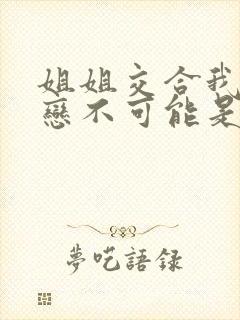 姐姐交合我
戀不可能是
夢吃語録